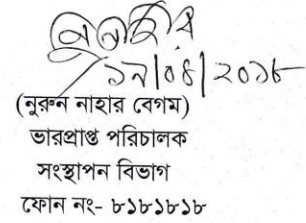 ১৭/০৪/২০১৮
(নুরুন নাহার বেগম)
ভারপ্রাপ্ত পরিচালক
সংস্থাপন বিভাগ
ফোন নং- ৮১৮১৮১৮